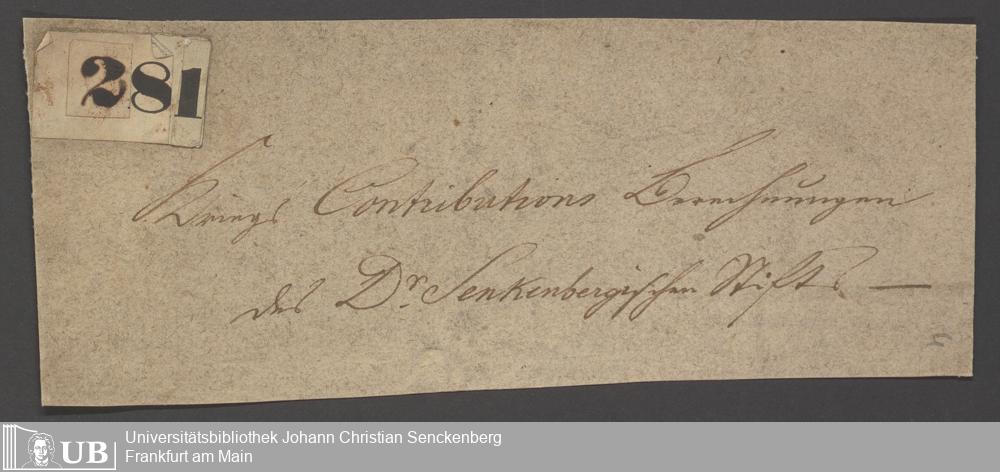 281
Kriegs Contributions Berechnungen
des Dr. Senkenbergischen Stifts —
UB
Universitätsbibliothek Johann Christian Senckenberg
Frankfurt am Main